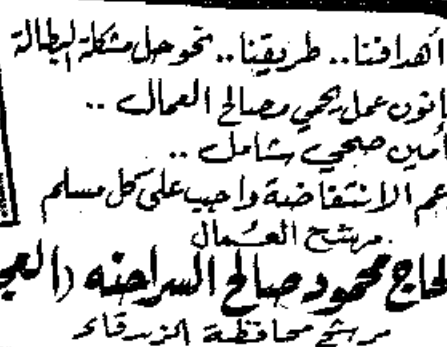 أهدافنا.. طريقنا.. نحو حل مشكلة البطالة
انون عمل يحمي مصالح العمال ..
أمين صحي شامل ..
عم الانتفاضة واجب على كل مسلم
مرشح العمال
لحاج محمود صالح السراحنه (العج
مرشح محافظة الزرقاء